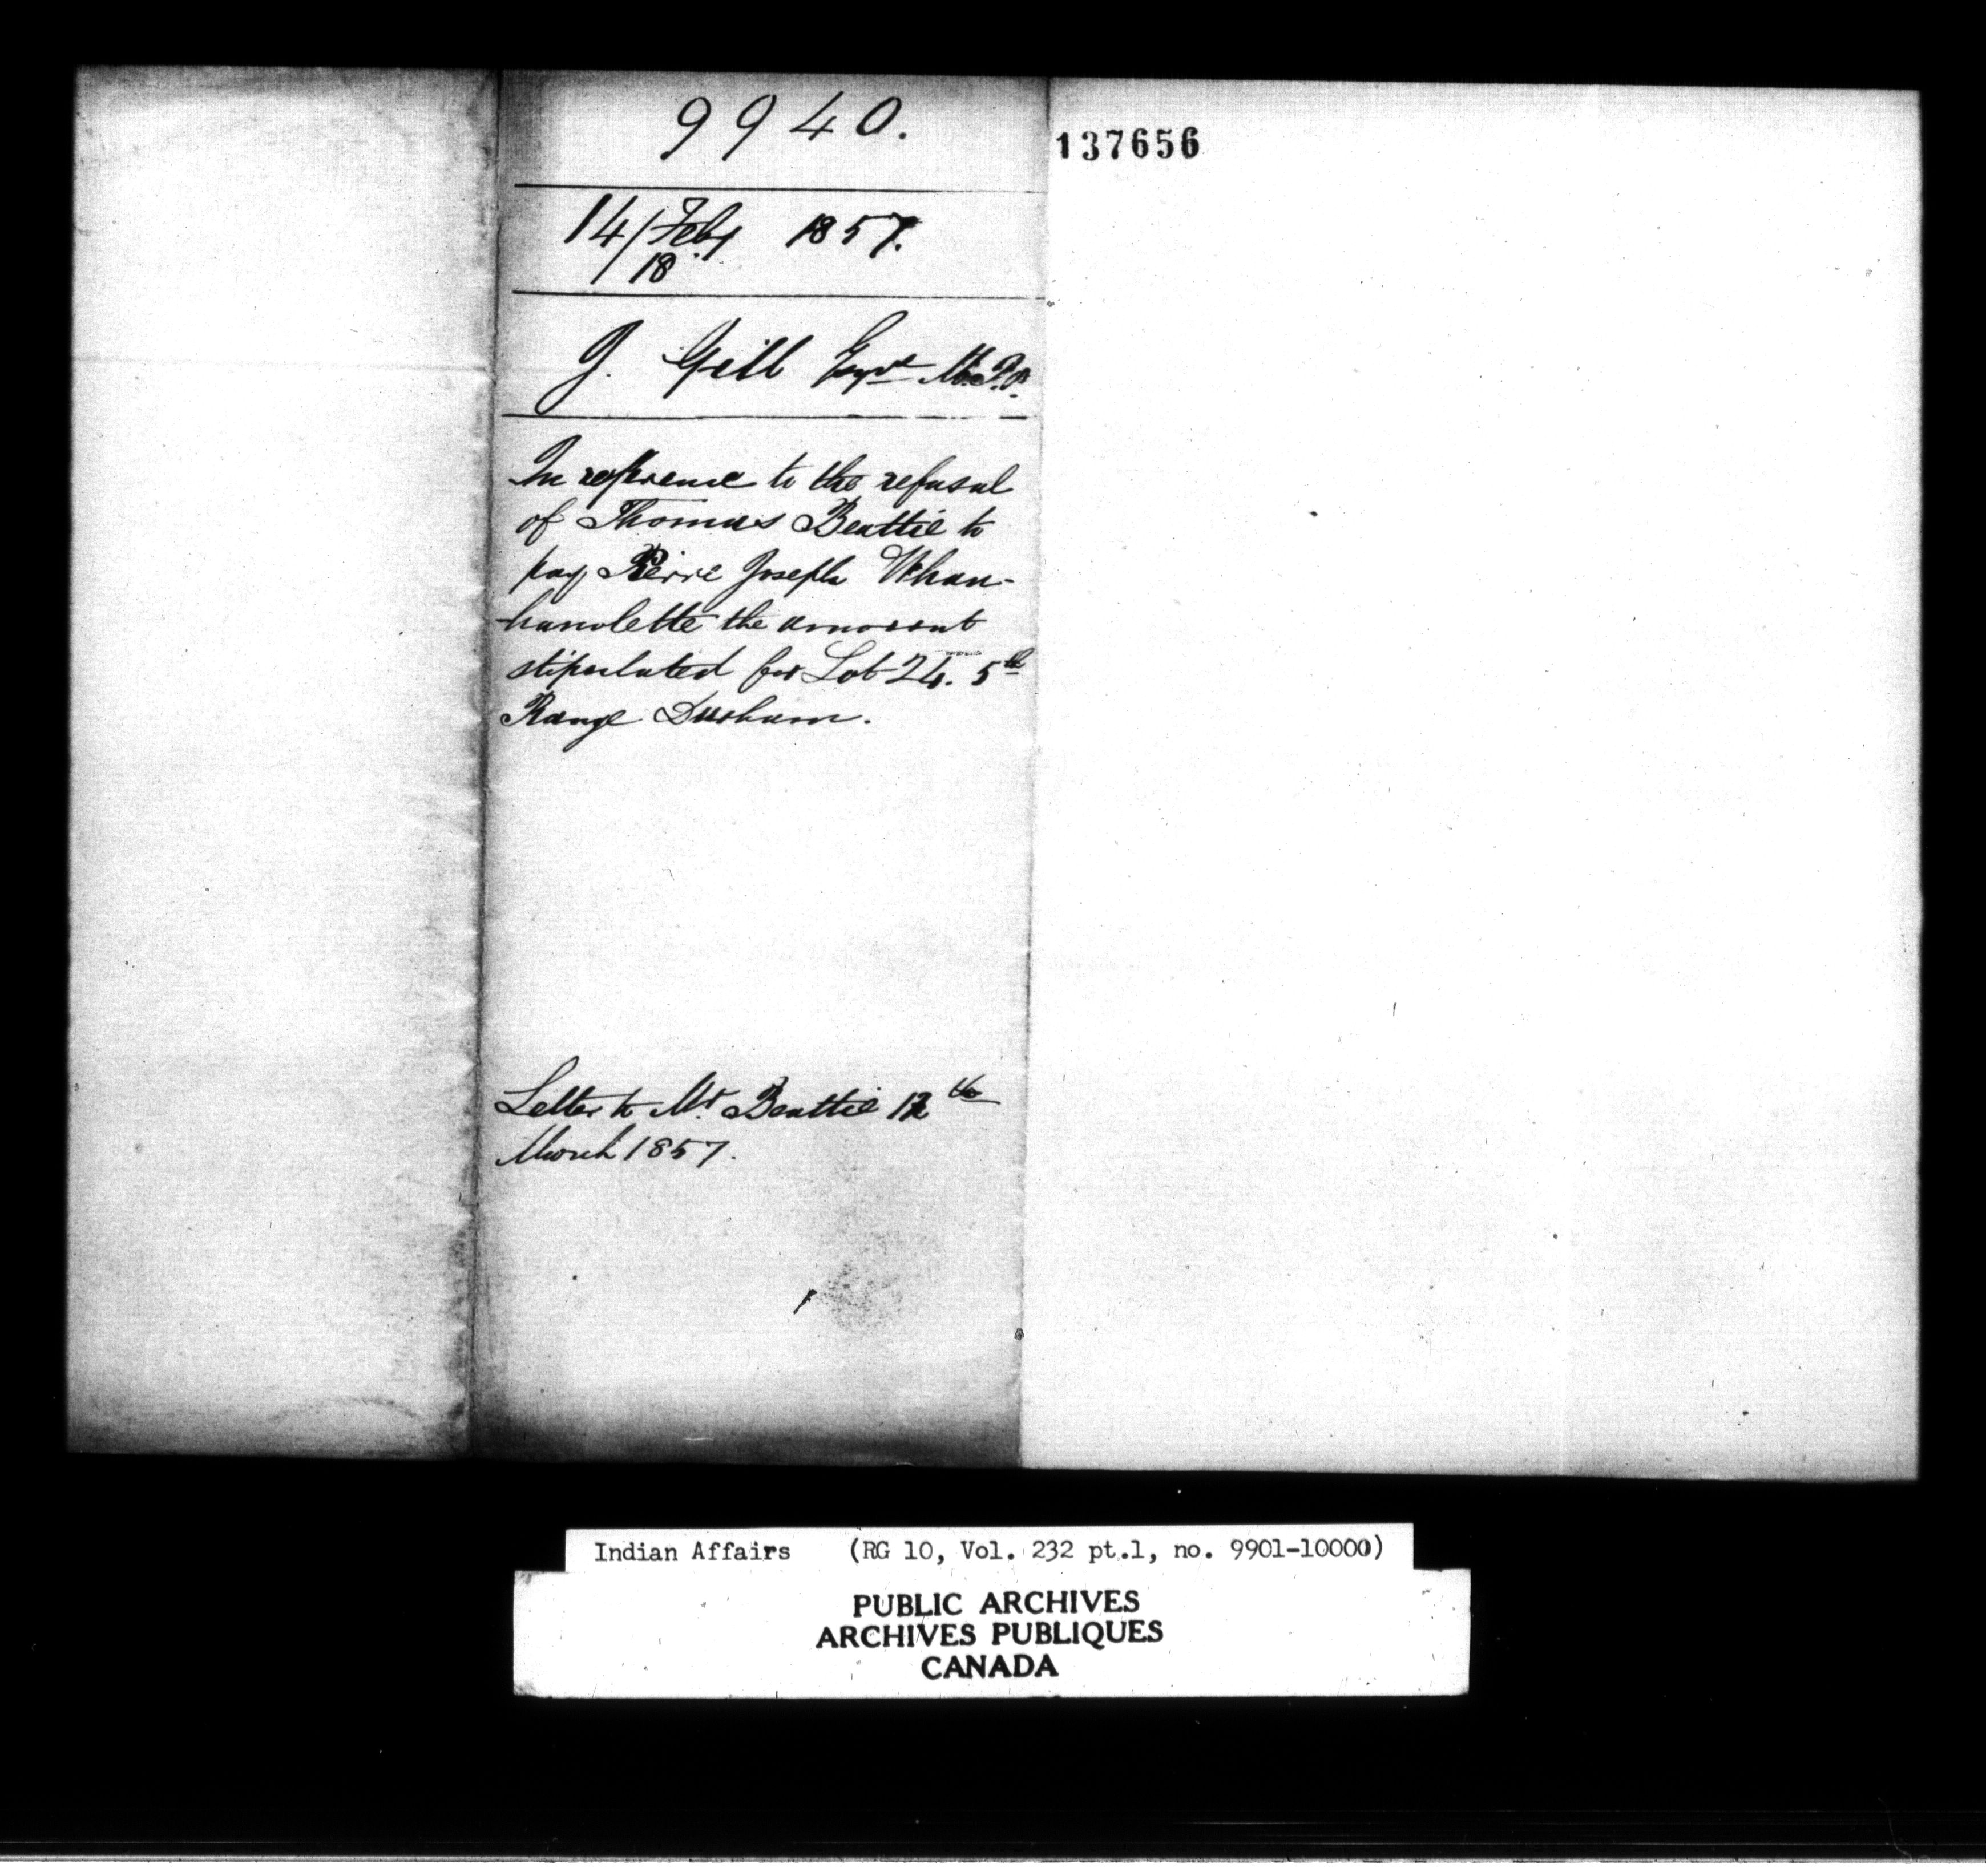 9940.
137656
14/18 Feby 1857.
J. Gill Esqre M.P.P.
In reference to the refusal
of Thomas Beattie to
pay Pierre Joseph
the amount
stipulated for Lot 24. 5th
Range Durham.
Letter to Mr. Beattie 12th
March 1857.
Indian Affairs (RG 10, Vol. 232 pt.1, no. 9901-10000)
PUBLIC ARCHIVES
ARCHIVES PUBLIQUES
CANADA